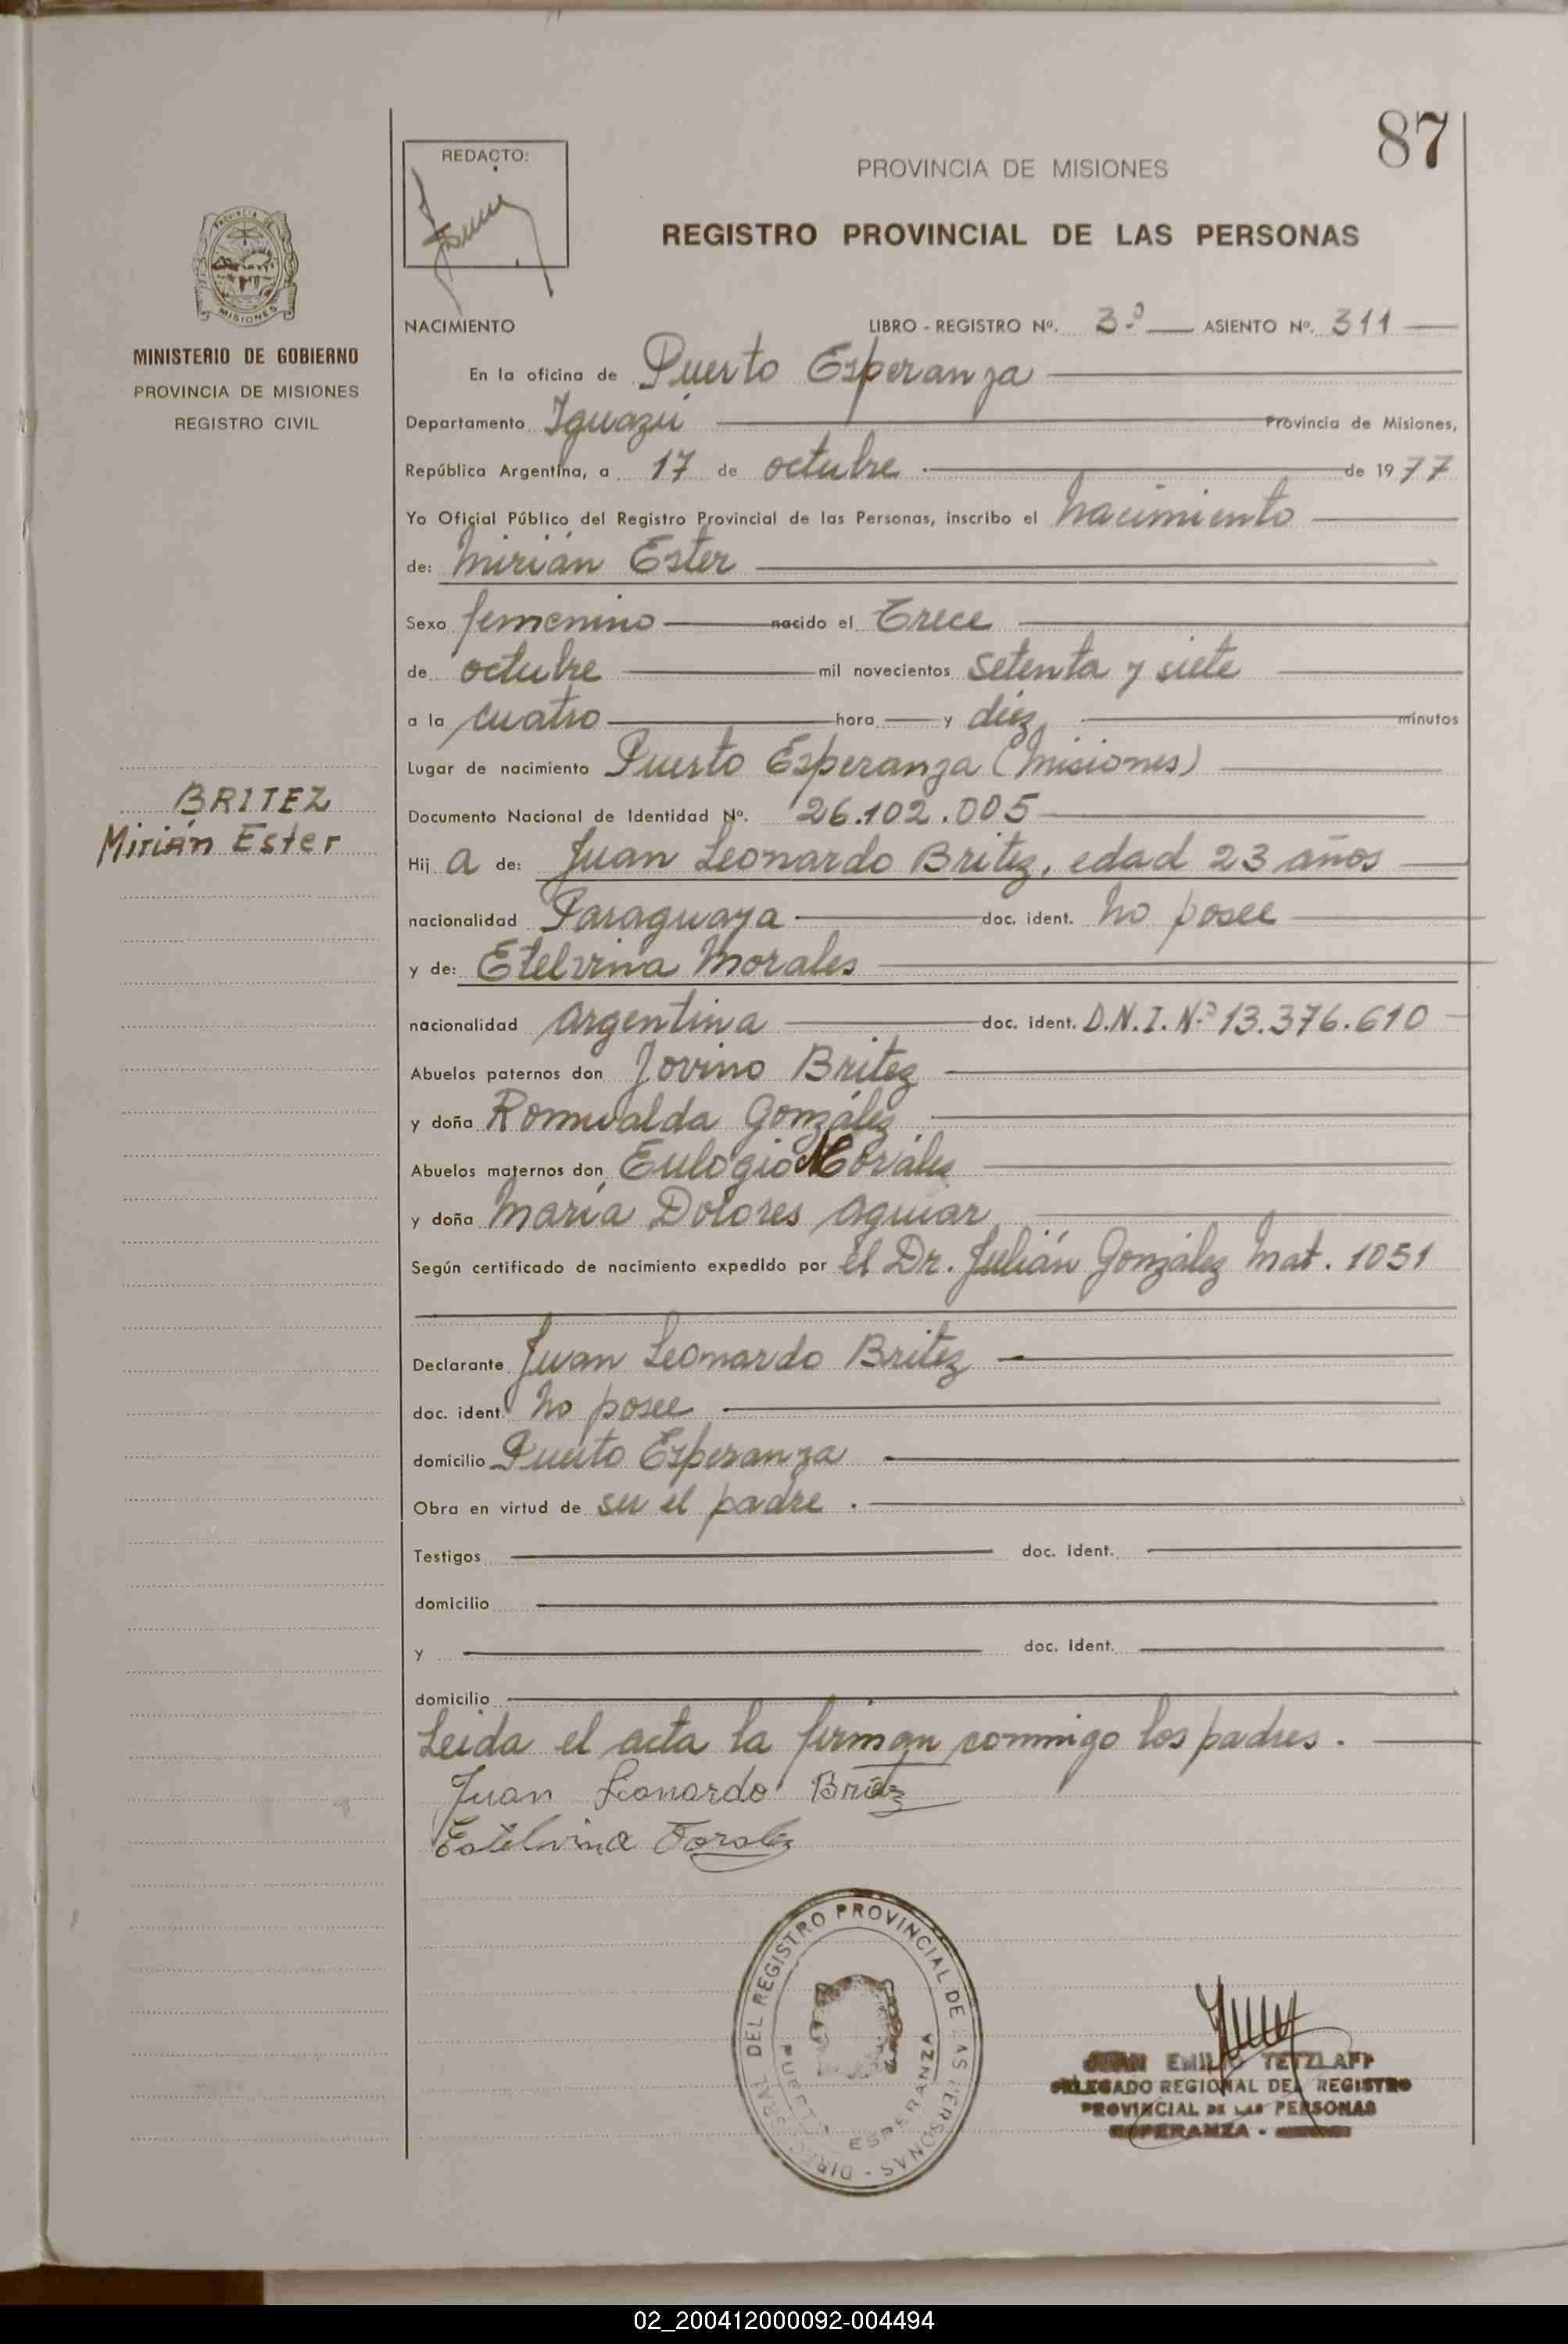 87
REDACTO:
PROVINCIA DE MISIONES
REGISTRO PROVINCIAL DE LAS PERSONAS
PROVINCIA DE
MISIONES
MINISTERIO DE GOBIERNO
PROVINCIA DE MISIONES
REGISTRO CIVIL
BRITEZ
Mirián Ester
NACIMIENTO LIBRO - REGISTRO Nº. 3º ASIENTO Nº. 311
En la oficina de Puerto Esperanza
Departamento Iguazú Provincia de Misiones,
República Argentina, a 17 de octubre de 1977
Yo Oficial Público del Registro Provincial de las Personas, inscribo el nacimiento
de: Mirián Ester
Sexo femenino nacido el Trece
de octubre mil novecientos setenta y siete
a la cuatro hora y diez minutos
Lugar de nacimiento Puerto Esperanza (Misiones)
Documento Nacional de Identidad Nº. 26.102.005
Hij a de: Juan Leonardo Britez, edad 23 años
nacionalidad Paraguaya doc. ident. no posee
y de: Etelvina Morales
nacionalidad argentina doc. ident. D.N.I. Nº 13.376.610
Abuelos paternos don Jovino Britez
y doña Romualda González
Abuelos maternos don Eulogio Morales
y doña María Dolores Aguiar
Según certificado de nacimiento expedido por el Dr. Julián González Mat. 1051
Declarante Juan Leonardo Britez
doc. ident. no posee
domicilio Puerto Esperanza
Obra en virtud de ser el padre.
Testigos doc. ident.
domicilio
y doc. ident.
domicilio
Leida el acta la firman conmigo los padres.
Juan Leonardo Britez
Estelvina
DEL REGISTRO PROVINCIAL DE LAS PERSONAS - DIREC. GRAL.
PUERTO ESPERANZA
JUAN EMILIO TETZLAFF
DELEGADO REGIONAL DEL REGISTRO
PROVINCIAL DE LAS PERSONAS
ESPERANZA -
02_200412000092-004494